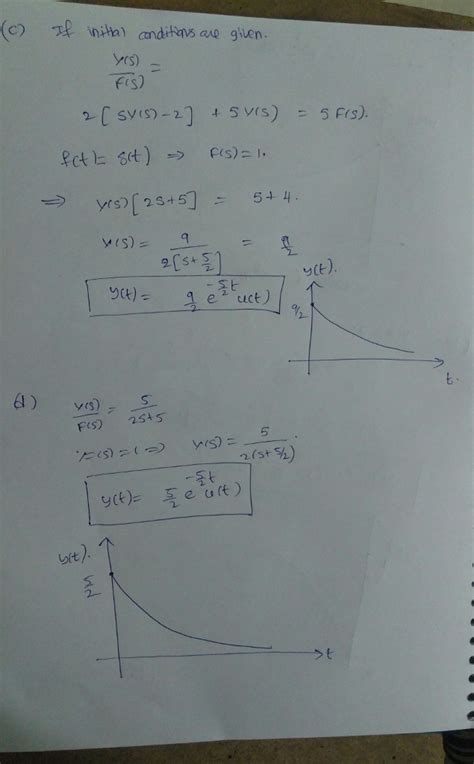 (c) If initial conditions are given.
Y(s)/F(s) =
2[SY(s)-2] + 5Y(s) = 5F(s).
f(t)= δ(t) ⇒ F(s)=1.
⇒ Y(s)[2S+5] = 5+4.
Y(s) = 9/2[S+5/2] = 9/2
y(t)= 9/2 e^{-5/2 t} u(t)
y(t).
9/2
t.
d) Y(s)/F(s) = 5/2S+5
∵ F(s)=1 ⇒ Y(s) = 5/2(s+5/2).
y(t)= 5/2 e^{-5/2 t} u(t)
y(t).
5/2
t